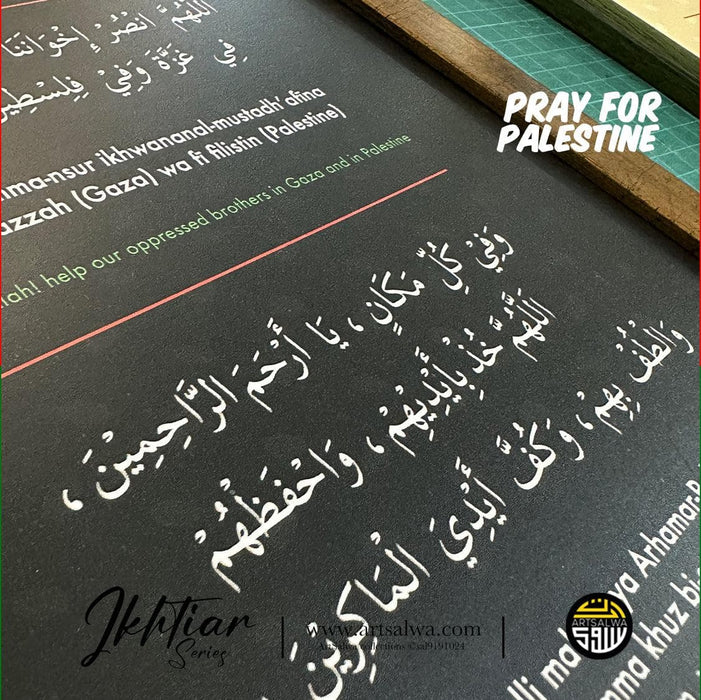 اللَّهُمَّ انْصُرْ إِخْوَانَنَا
فِي غَزَّةَ وَفِيْ فِلِسْطِيْن
mma-nsur ikhwananal-mustadh'afina
azzah (Gaza) wa fi filistin (Palestine)
lah! help our oppressed brothers in Gaza and in Palestine
PRAY FOR
PALESTINE
وَفِيْ كُلِّ مَكَانٍ ، يَا أَرْحَمَ الرَّاحِمِيْنَ ،
اللَّهُمَّ خُذْ بِأَيْدِيْهِمْ ، وَاحْفَظْهُمْ
وَالْطُفْ بِهِمْ ، وَكُفَّ أَيْدِيَ الْمَاكِرِيْنَ
ya Arhamar-R
mma khuz bi
Ikhtiar
Series
www.artsalwa.com
Artsalwa Collections ©sal9191024
ARTSALWA